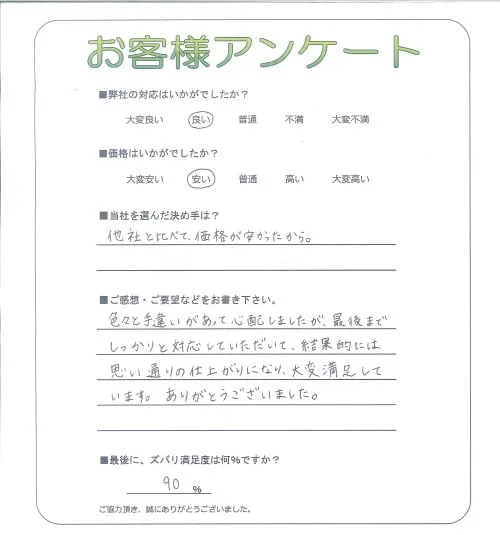 お客様アンケート
■弊社の対応はいかがでしたか？
大変良い 良い 普通 不満 大変不満
■価格はいかがでしたか？
大変安い 安い 普通 高い 大変高い
■当社を選んだ決め手は？
他社と比べて、価格が安かったから。
■ご感想・ご要望などをお書き下さい。
色々と手違いがあって心配しましたが、最後まで
しっかりと対応していただいて、結果的には
思い通りの仕上がりになり、大変満足して
います。 ありがとうございました。
■最後に、ズバリ満足度は何%ですか？
90 %
ご協力頂き、誠にありがとうございました。